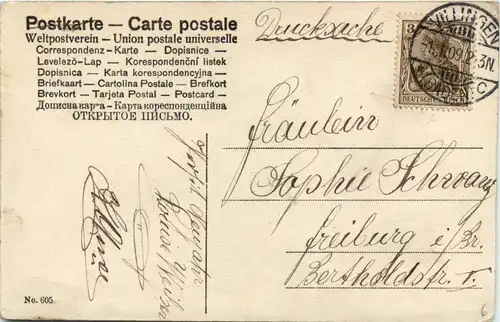 Postkarte — Carte postale
Weltpostverein — Union postale universelle
Correspondenz-Karte — Dopisnice
Levelező-Lap — Korespondenční listek
Dopisnica — Karta korespondencyjna
Briefkaart — Cartolina Postale — Brefkort
Brevkort — Tarjeta Postal — Postcard —
Дописна карта — Карта кореспонденційна
ОТКРЫТОЕ ПИСЬМО.
Drucksache
VILLINGEN
3
DEUTSCHES REICH
Fräulein
Sophie Schwarz
Freiburg i/Br.
Bertholdstr.
Neujahr
Louise
No. 605.
6